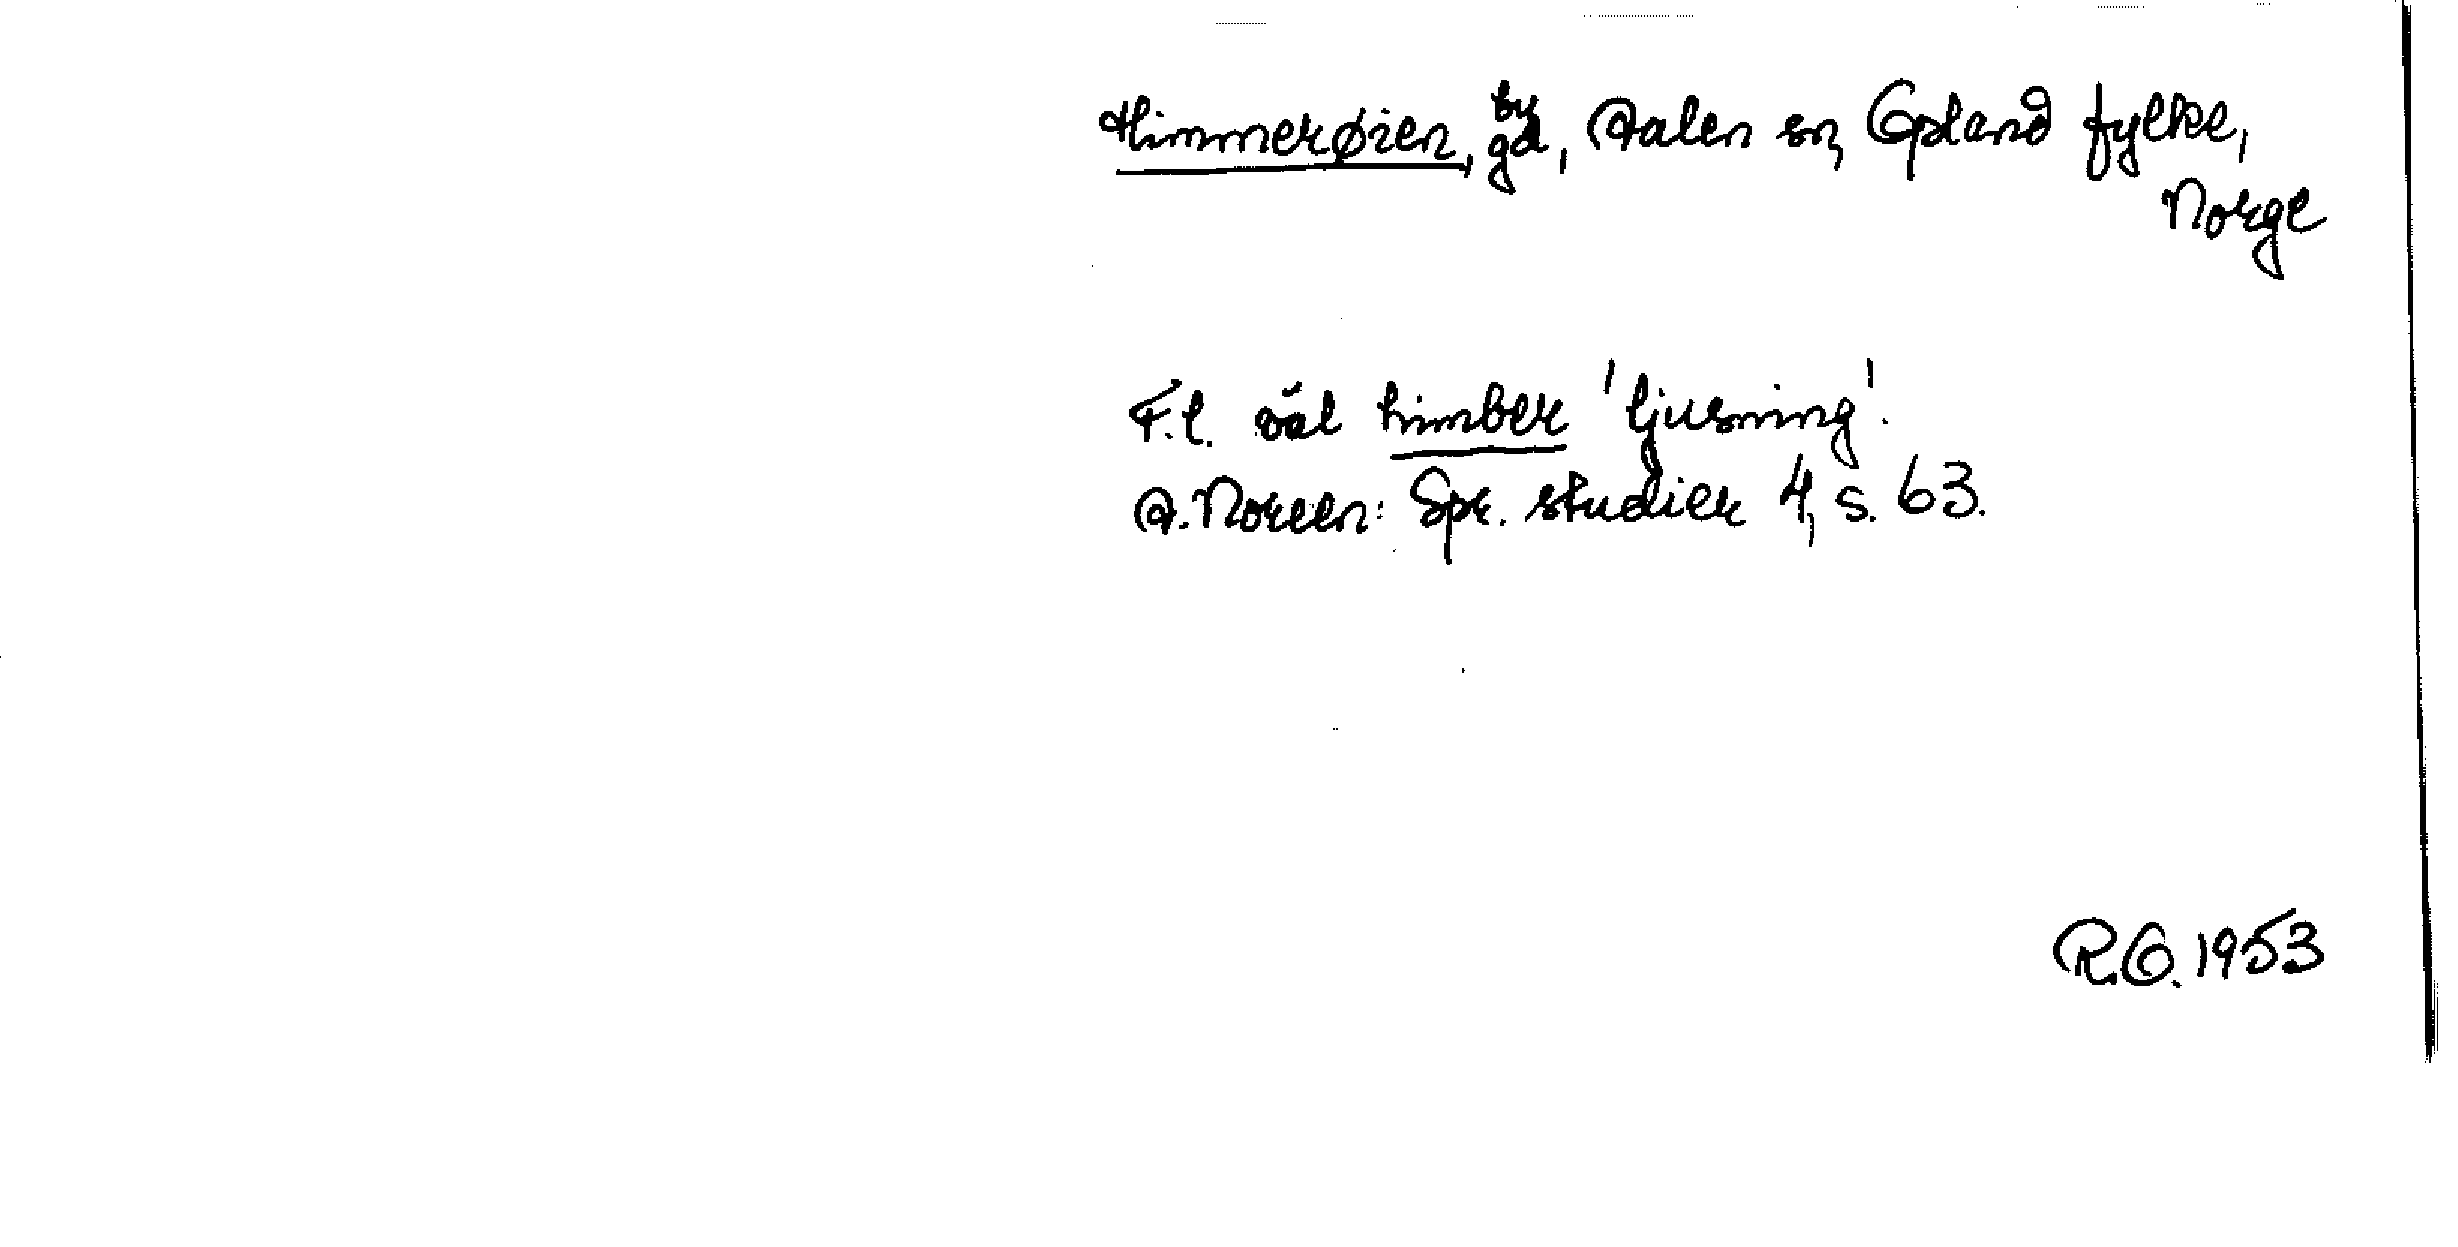 Himmerøien, by gd, Aalen sn, Opland fylke,
Norge
F.l. väl himber 'ljusning'.
A. Noreen: Spr. studier 4, s. 63.
R.O. 1953